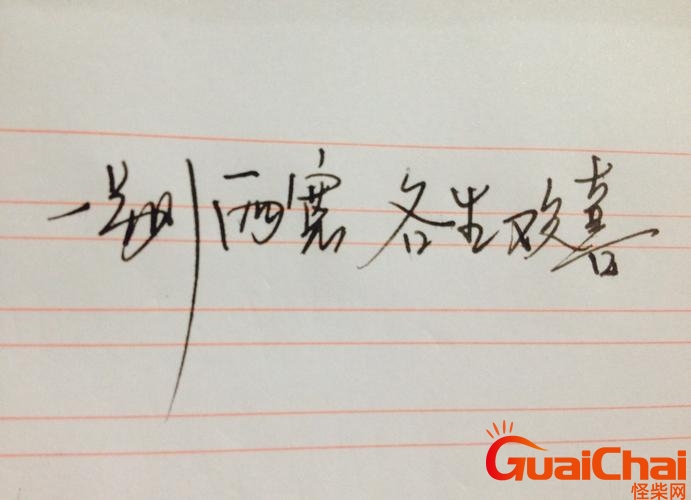 一别两宽 各生欢喜
GuaiChai
怪柴网